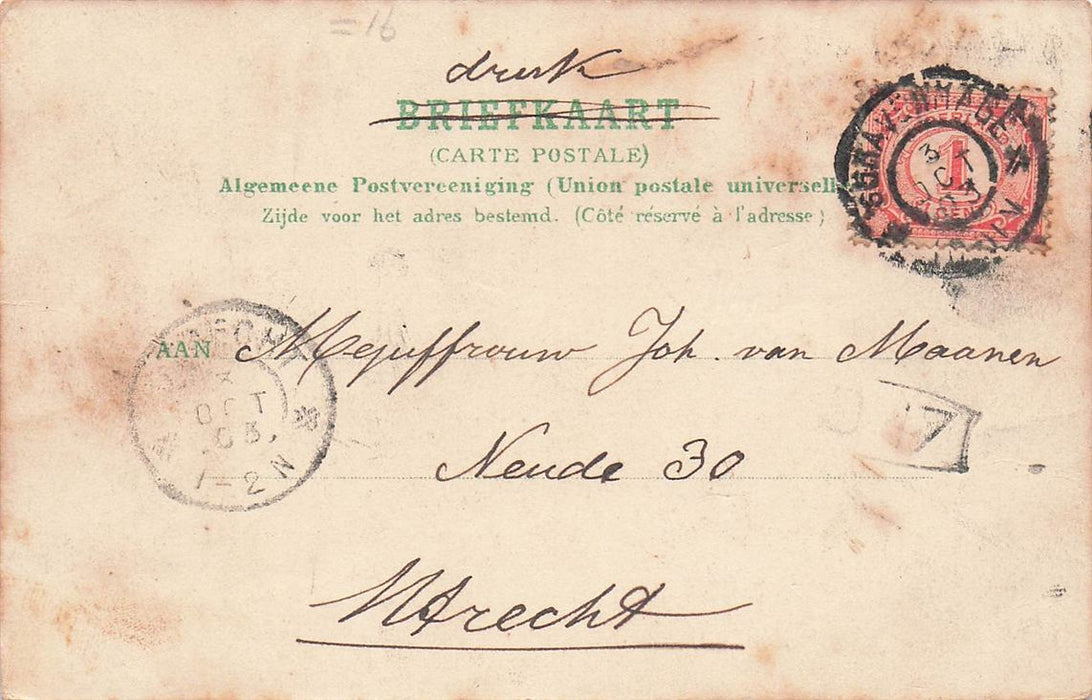 =16
druk
BRIEFKAART
(CARTE POSTALE)
Algemeene Postvereeniging (Union postale universell
Zijde voor het adres bestemd. (Côté réservé à l'adresse)
'SGRAVENHAGE
OCT
1
AAN Mejuffrouw Joh. van Maanen
OCT
03.
1-2 N
7
Neude 30
Utrecht